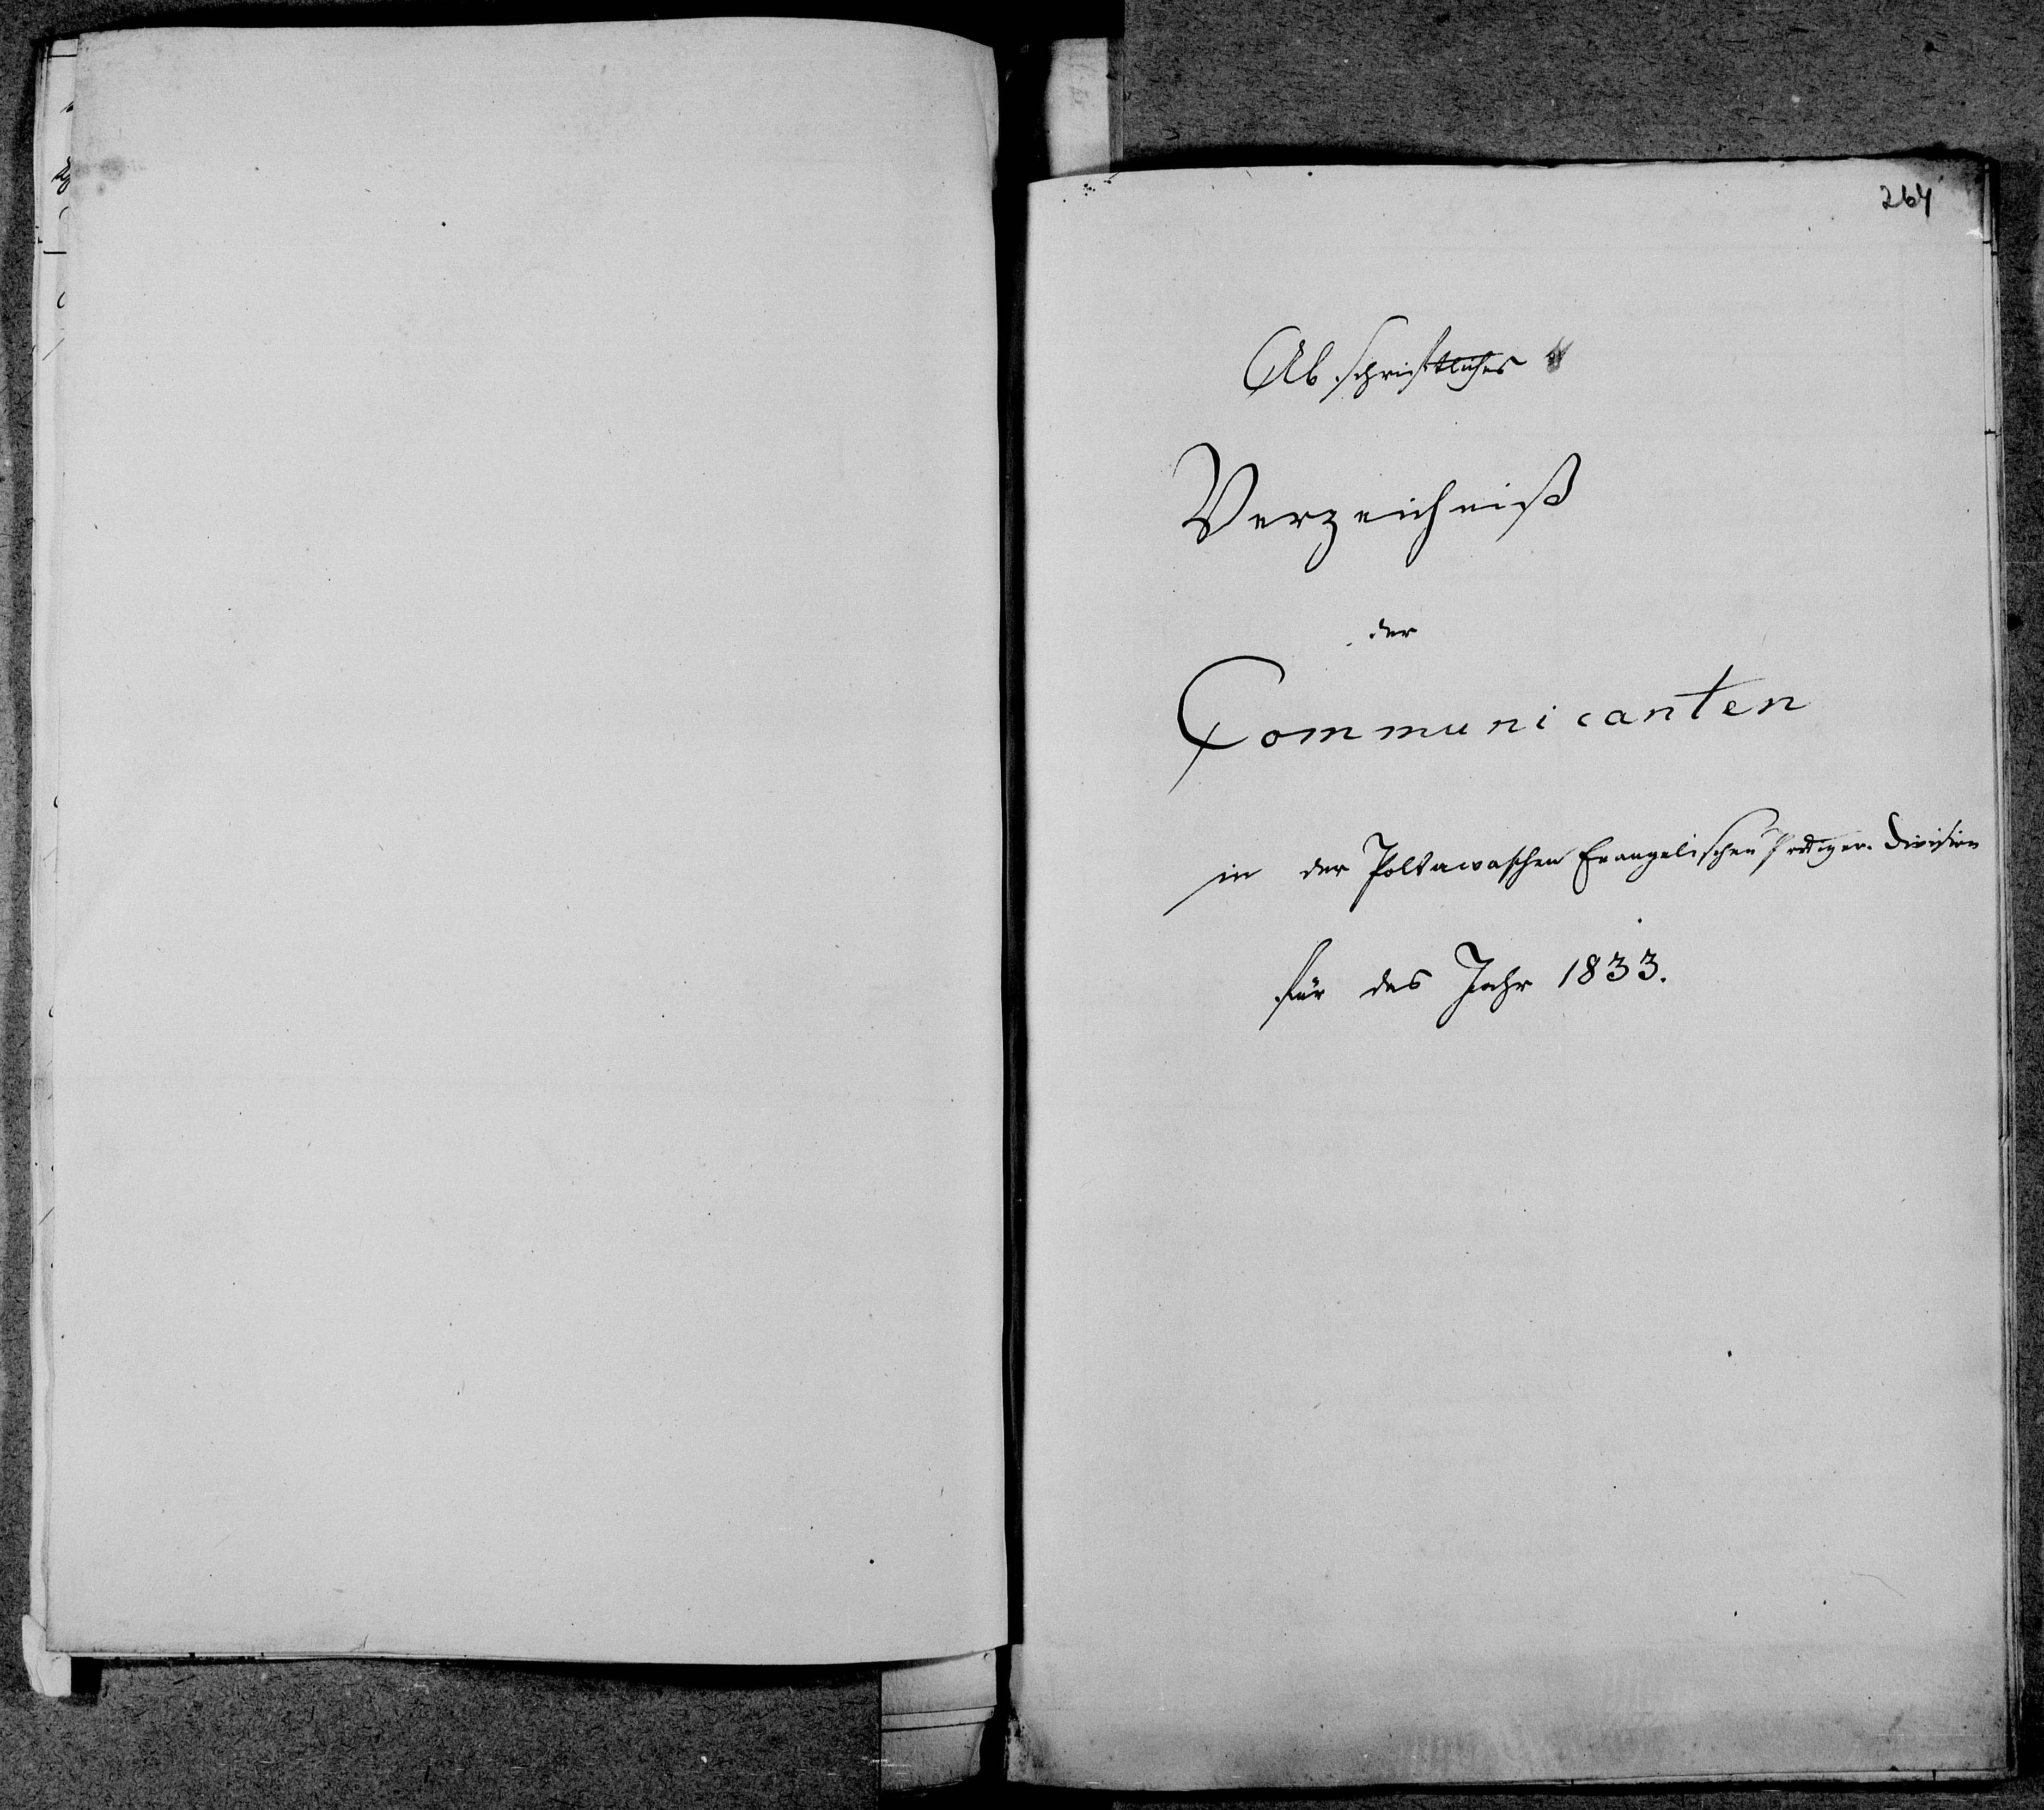 264
Abschriftliches
Verzeichniß
der
Communicanten
in der Poltawaschen Evangelischen Prediger-Division
für das Jahr 1833.